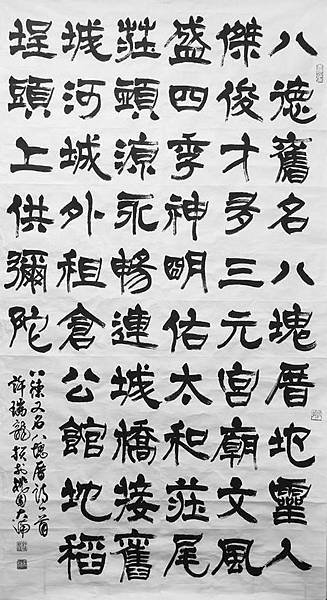 八德舊名八塊厝地靈人
傑俊才多三元宮廟文風
盛四季神明佑太和莊尾
莊頭源永暢連城橋接舊
城河城外租倉公館地稻
埕頭上供彌陀
八德又名八塊厝詩一首
許瑞龍撰於桃園大湳